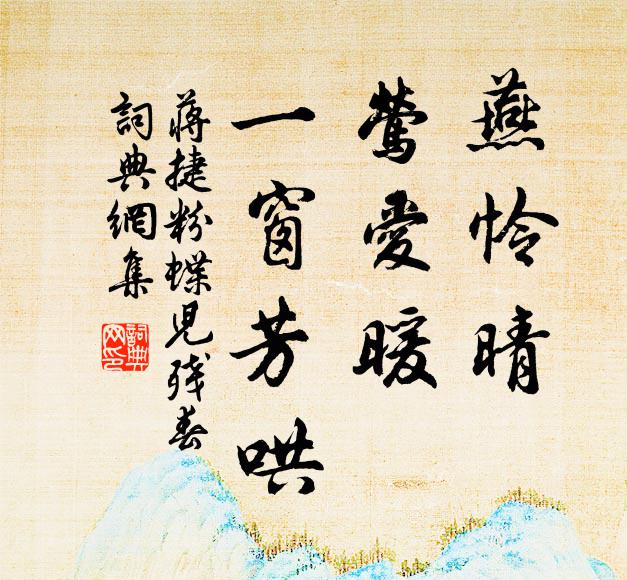 燕怜晴
鶯愛暖
一窗芳哄
蔣捷粉蝶児殘春
詞典網集
詞典网印